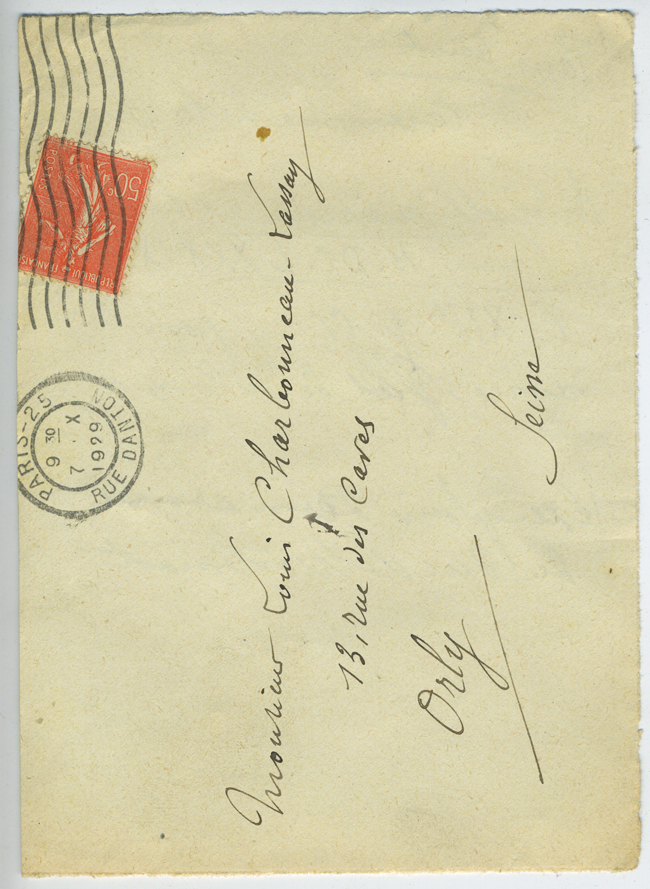 PARIS-25
RUE DANTON
9 30
7 X
1929
50c
POSTES
REPUBLIQUE FRANÇAISE
Monsieur Louis Charbonneau-Lassay
13, rue des Caves
Orly
Seine